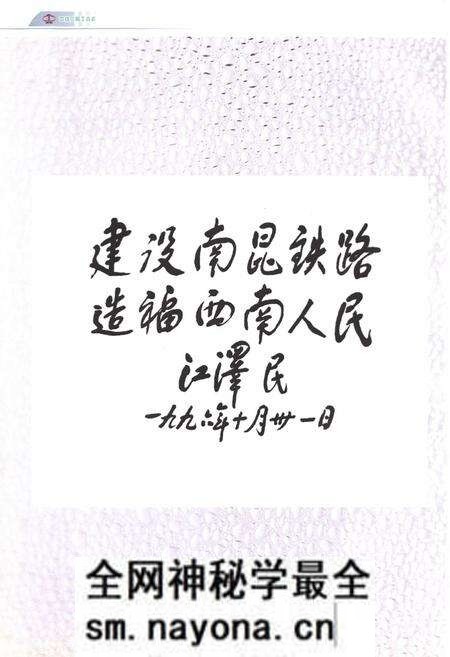 建设南昆铁路
造福西南人民
江澤民
一九九六年十月卅一日
全网神秘学最全
sm.nayona.cn